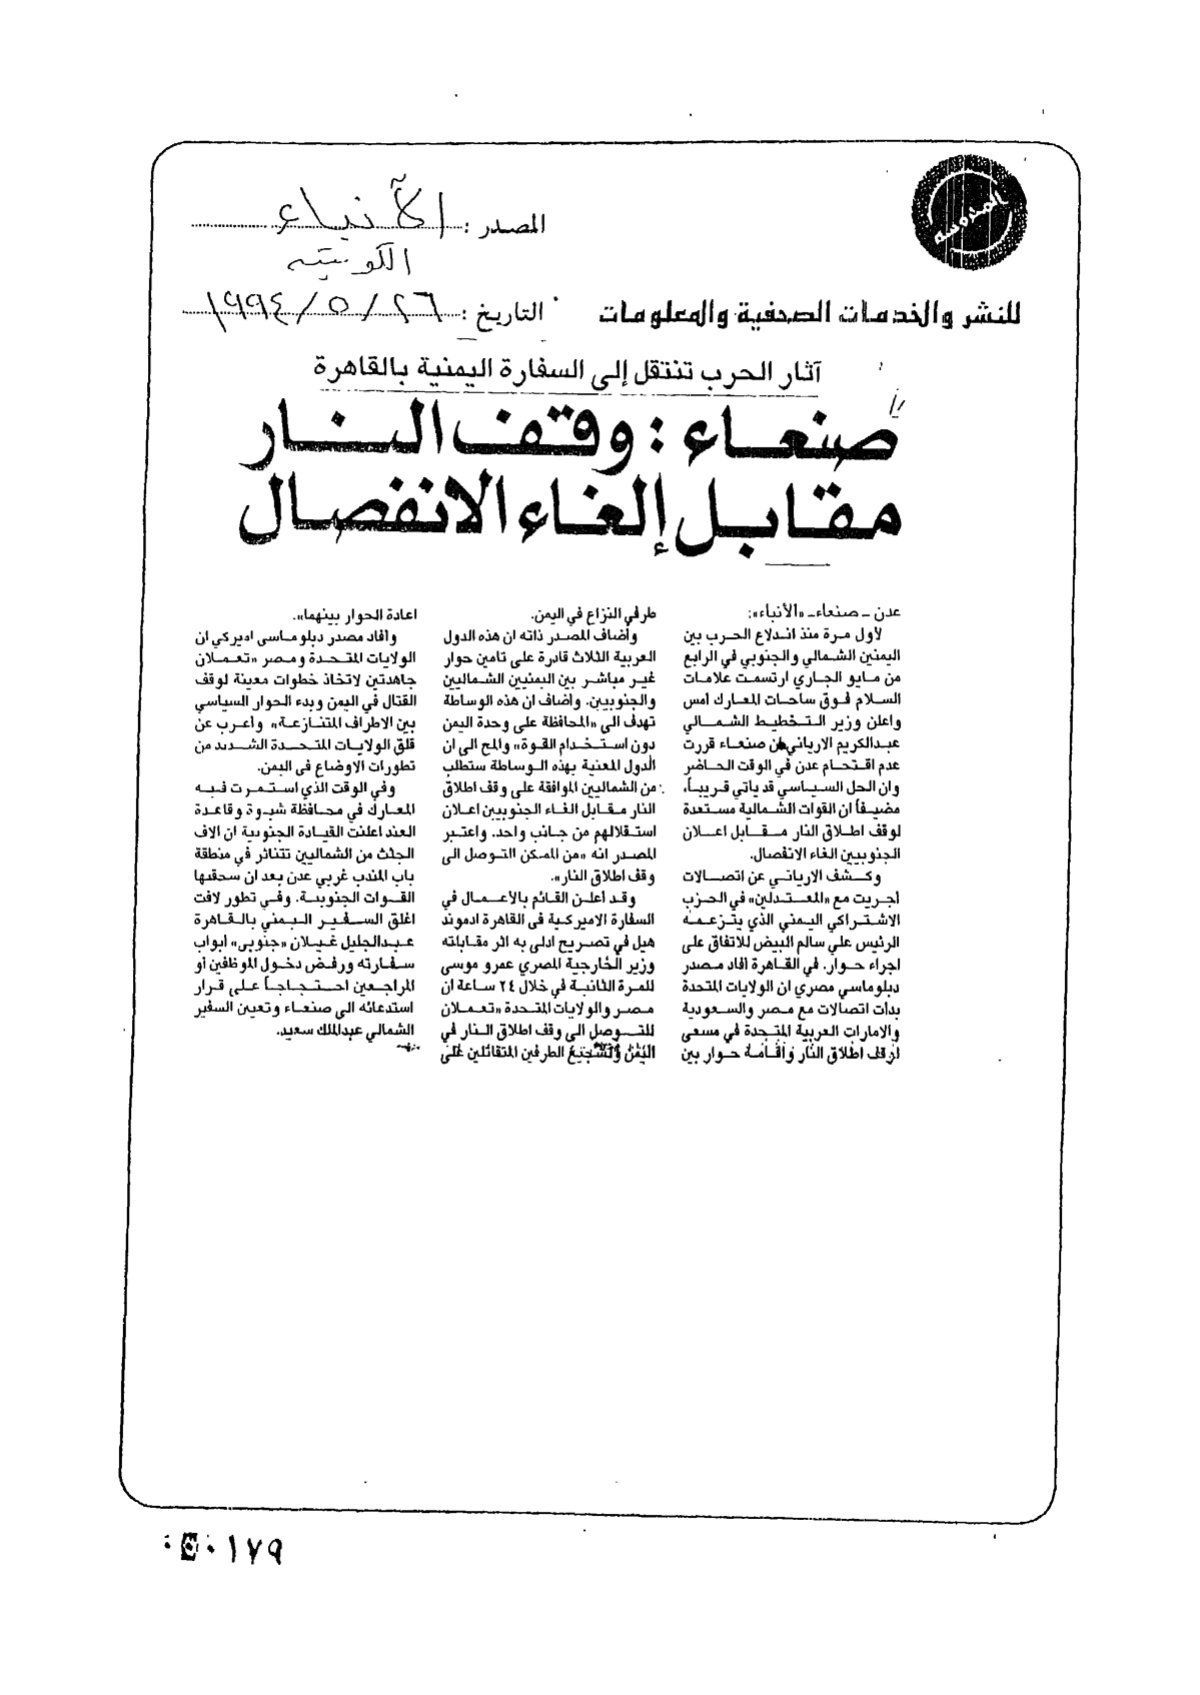 المحروسة
المصدر : الأنباء
الكويتية
للنشر والخدمات الصحفية والمعلومات
التاريخ : ٢٦ / ٥ / ١٩٩٤
آثار الحرب تنتقل إلى السفارة اليمنية بالقاهرة
صنعاء : وقف النار
مقابل إلغاء الانفصال
عدن ـ صنعاء ـ «الأنباء»:
لأول مرة منذ اندلاع الحرب بين
اليمنين الشمالي والجنوبي في الرابع
من مايو الجاري ارتسمت علامات
السلام فوق ساحات المعارك امس
واعلن وزير التخطيط الشمالي
عبدالكريم الارياني ان صنعاء قررت
عدم اقتحام عدن في الوقت الحاضر
وان الحل السياسي قد ياتي قريباً،
مضيفاً ان القوات الشمالية مستعدة
لوقف اطلاق النار مقابل اعلان
الجنوبيين الغاء الانفصال.
وكشف الارياني عن اتصالات
اجريت مع «المعتدلين» في الحزب
الاشتراكي اليمني الذي يتزعمه
الرئيس علي سالم البيض للاتفاق على
اجراء حوار. في القاهرة افاد مصدر
دبلوماسي مصري ان الولايات المتحدة
بدأت اتصالات مع مصر والسعودية
والامارات العربية المتحدة في مسعى
لوقف اطلاق النار واقامة حوار بين
طرفي النزاع في اليمن.
وأضاف المصدر ذاته ان هذه الدول
العربية الثلاث قادرة على تامين حوار
غير مباشر بين اليمنيين الشماليين
والجنوبيين. واضاف ان هذه الوساطة
تهدف الى «المحافظة على وحدة اليمن
دون استخدام القوة» والمح الى ان
الدول المعنية بهذه الوساطة ستطلب
من الشماليين الموافقة على وقف اطلاق
النار مقابل الغاء الجنوبيين اعلان
استقلالهم من جانب واحد. واعتبر
المصدر انه «من الممكن التوصل الى
وقف اطلاق النار».
وقد أعلن القائم بالأعمال في
السفارة الاميركية في القاهرة ادموند
هيل في تصريح ادلى به اثر مقابلته
وزير الخارجية المصري عمرو موسى
للمرة الثانية في خلال ٢٤ ساعة ان
مصر والولايات المتحدة «تعملان
للتوصل الى وقف اطلاق النار في
اليمن وتشجيع الطرفين المتقاتلين على
اعادة الحوار بينهما».
وأفاد مصدر دبلوماسي اميركي ان
الولايات المتحدة ومصر «تعملان
جاهدتين لاتخاذ خطوات معينة لوقف
القتال في اليمن وبدء الحوار السياسي
بين الاطراف المتنازعة» واعرب عن
قلق الولايات المتحدة الشديد من
تطورات الاوضاع في اليمن.
وفي الوقت الذي استمرت فيه
المعارك في محافظة شبوة وقاعدة
العند اعلنت القيادة الجنوبية ان الاف
الجثث من الشماليين تتناثر في منطقة
باب المندب غربي عدن بعد ان سحقتها
القوات الجنوبية. وفي تطور لافت
اغلق السفير اليمني بالقاهرة
عبدالجليل غيلان «جنوبي» ابواب
سفارته ورفض دخول الموظفين أو
المراجعين احتجاجاً على قرار
استدعائه الى صنعاء وتعيين السفير
الشمالي عبدالملك سعيد.
١٧٩